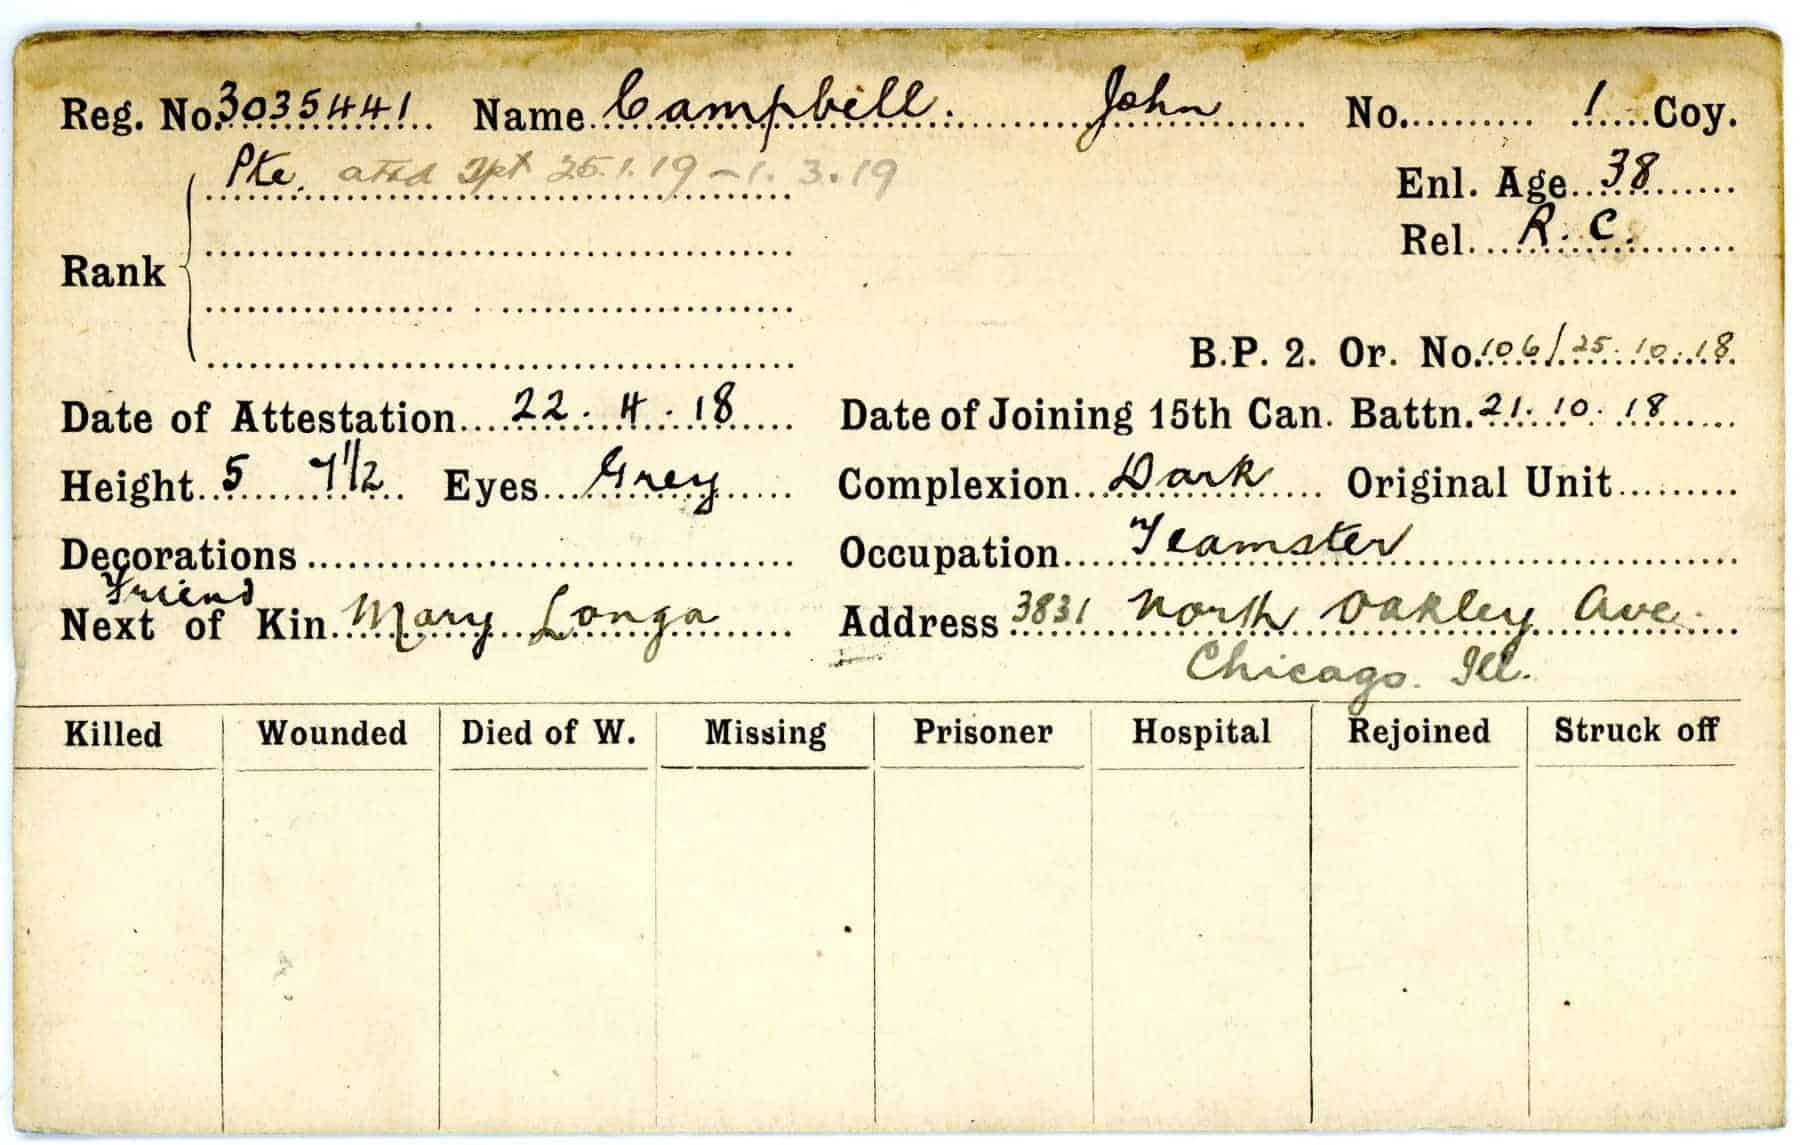 Reg. No. 3035441 Name Campbell. John No. 1 Coy.
Pte. attd Tpt 25.1.19 - 1.3.19
Enl. Age 38
Rel. R.C.
Rank
B.P. 2. Or. No. 106/25.10.18
Date of Attestation 22.4.18 Date of Joining 15th Can. Battn. 21.10.18
Height 5 7 1/2 Eyes Grey Complexion Dark Original Unit
Decorations Occupation Teamster
Friend
Next of Kin Mary Longa Address 3831 North Oakley Ave.
Chicago. Ill.
Killed Wounded Died of W. Missing Prisoner Hospital Rejoined Struck off